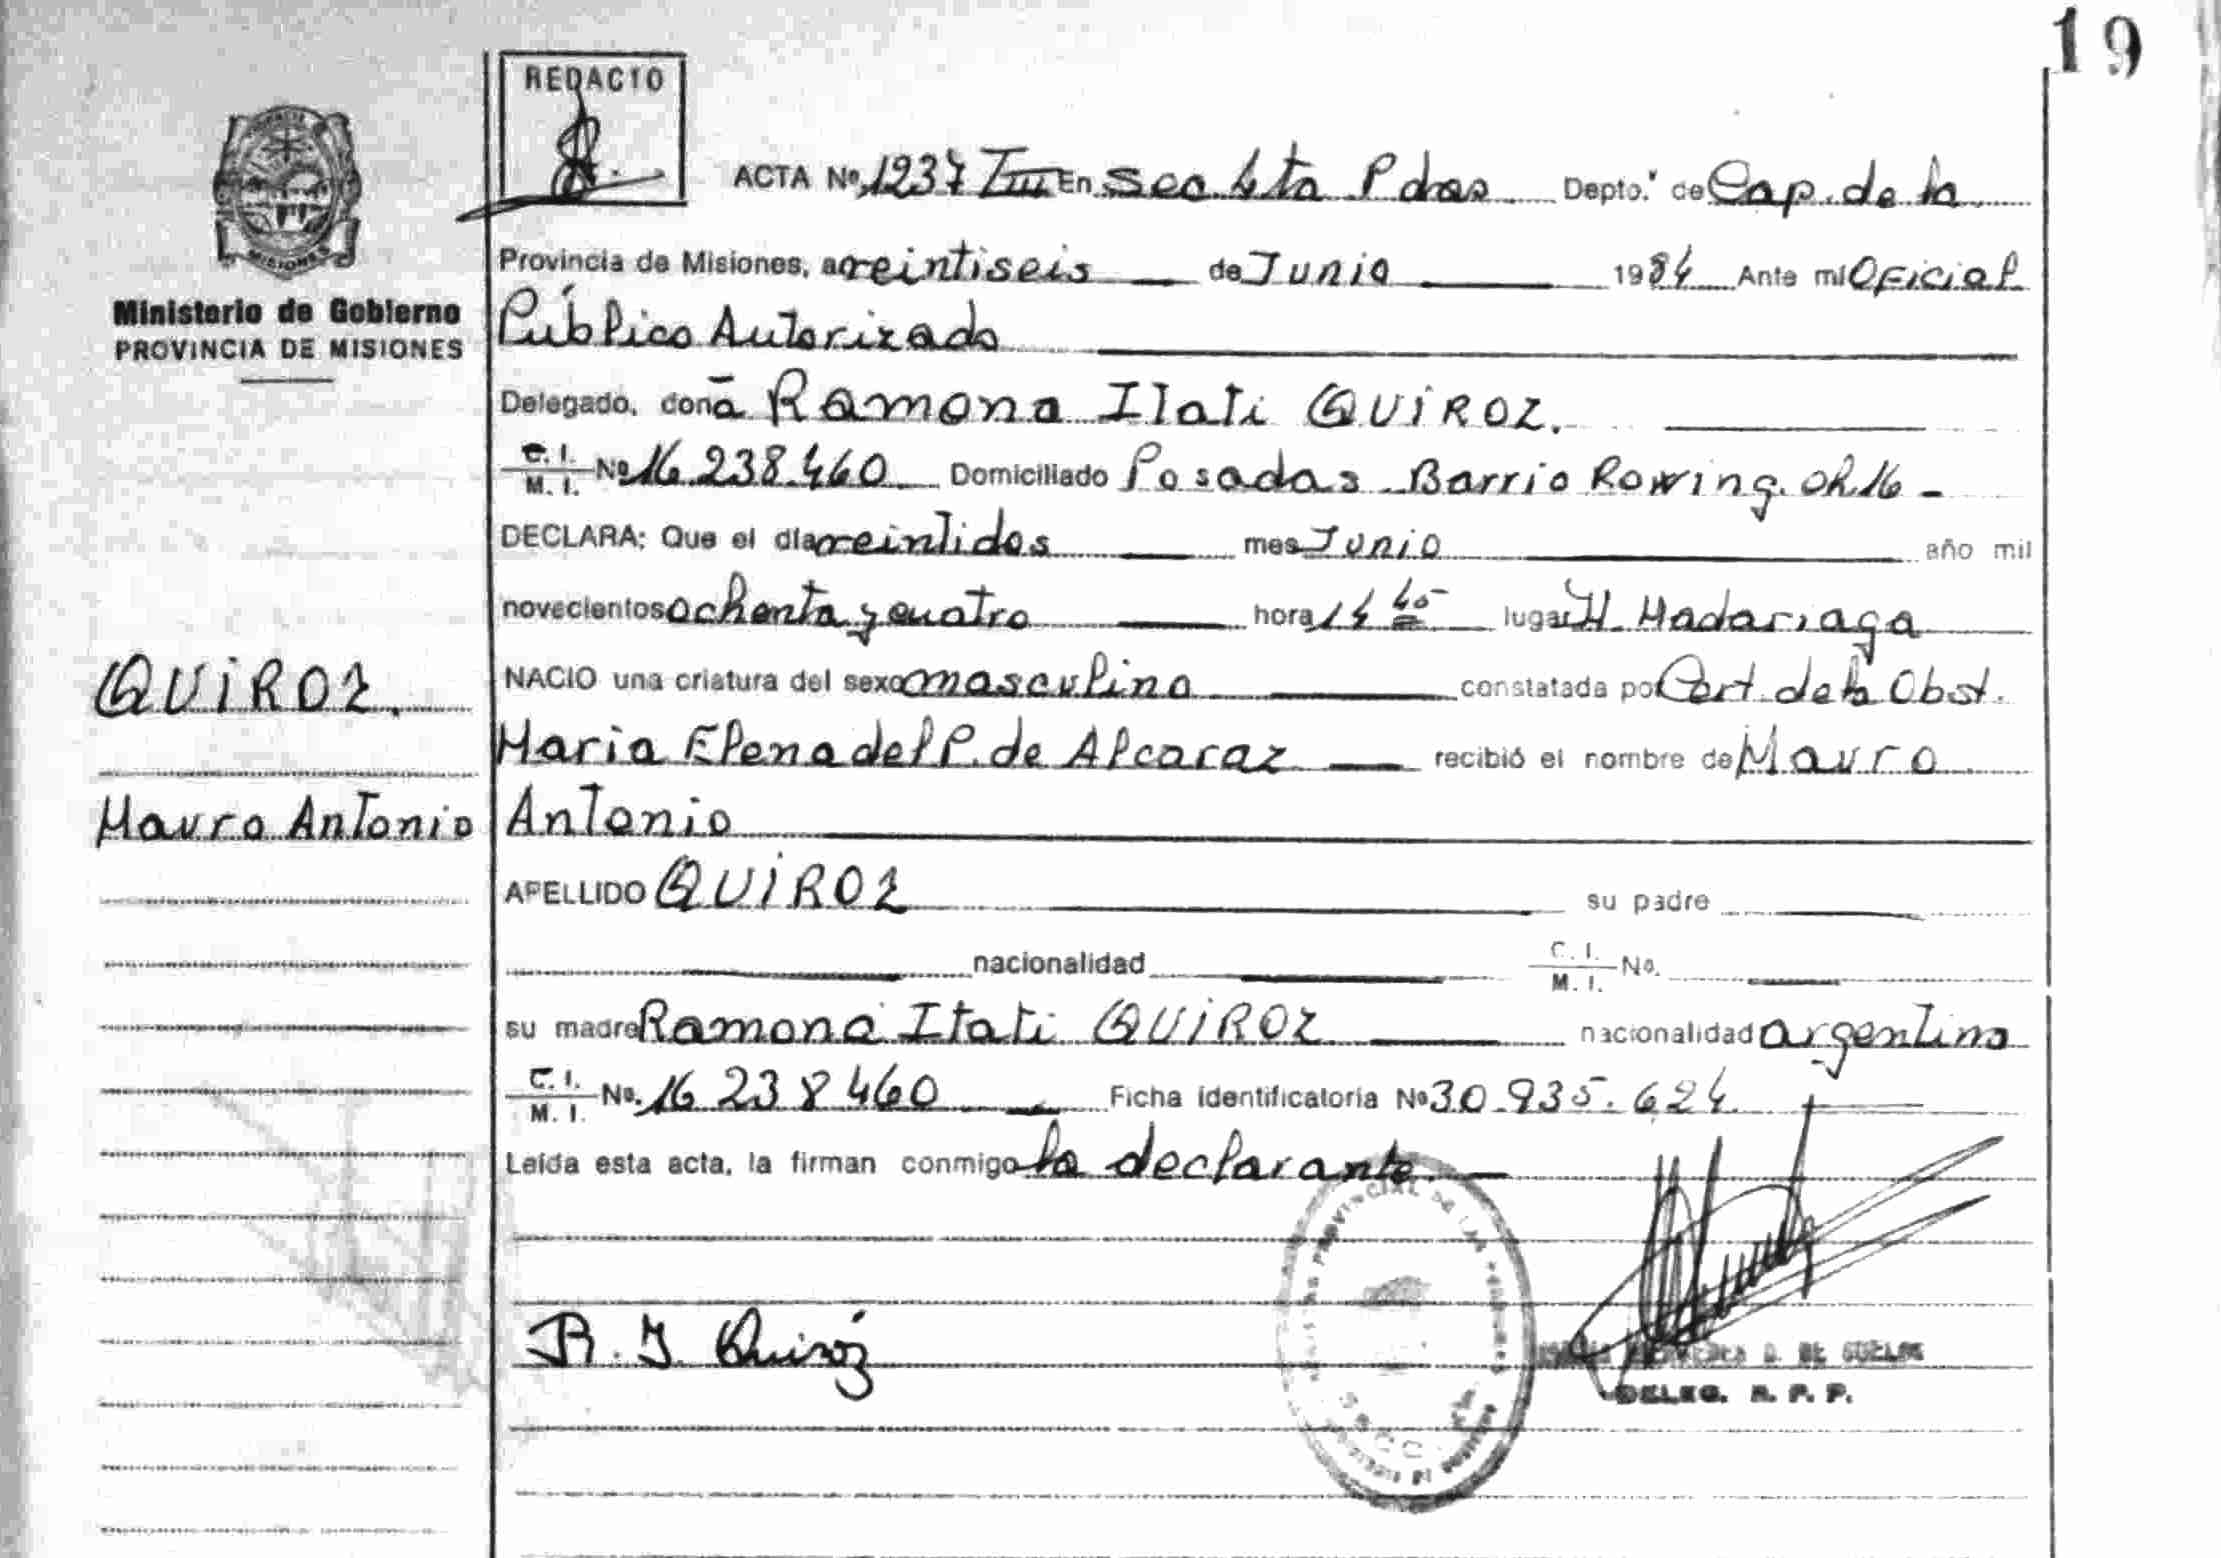 19
REDACTO
ACTA Nº 1237 TIII En Sec 4ta Pdas Depto. de Cap. de la
Provincia de Misiones, a veintiseis de Junio 1984 Ante mi Oficial
Ministerio de Gobierno
PROVINCIA DE MISIONES
Público Autorizado
Delegado, doña Ramona Itati QUIROZ.
C. I. / M. I. Nº 16.238.460 Domiciliado Posadas Barrio Rowing. Ch. 16 -
DECLARA: Que el día veintidos mes Junio año mil
novecientos ochenta y cuatro hora 14 40 lugar H. Madariaga
QUIROZ.
NACIO una criatura del sexo masculino constatada por Cert. de la Obst.
Maria Elena del P. de Alcaraz recibió el nombre de Mauro
Mauro Antonio
Antonio
APELLIDO QUIROZ su padre
nacionalidad C. I. / M. I. No.
su madre Ramona Itati QUIROZ nacionalidad argentina
C. I. / M. I. No. 16 238 460 Ficha identificatoria Nº 30.935.624.
Leída esta acta, la firman conmigo la declarante.
R. I. Quiróz
PROVINCIAL DE LAS
D. DE
DELEG. R. P. P.